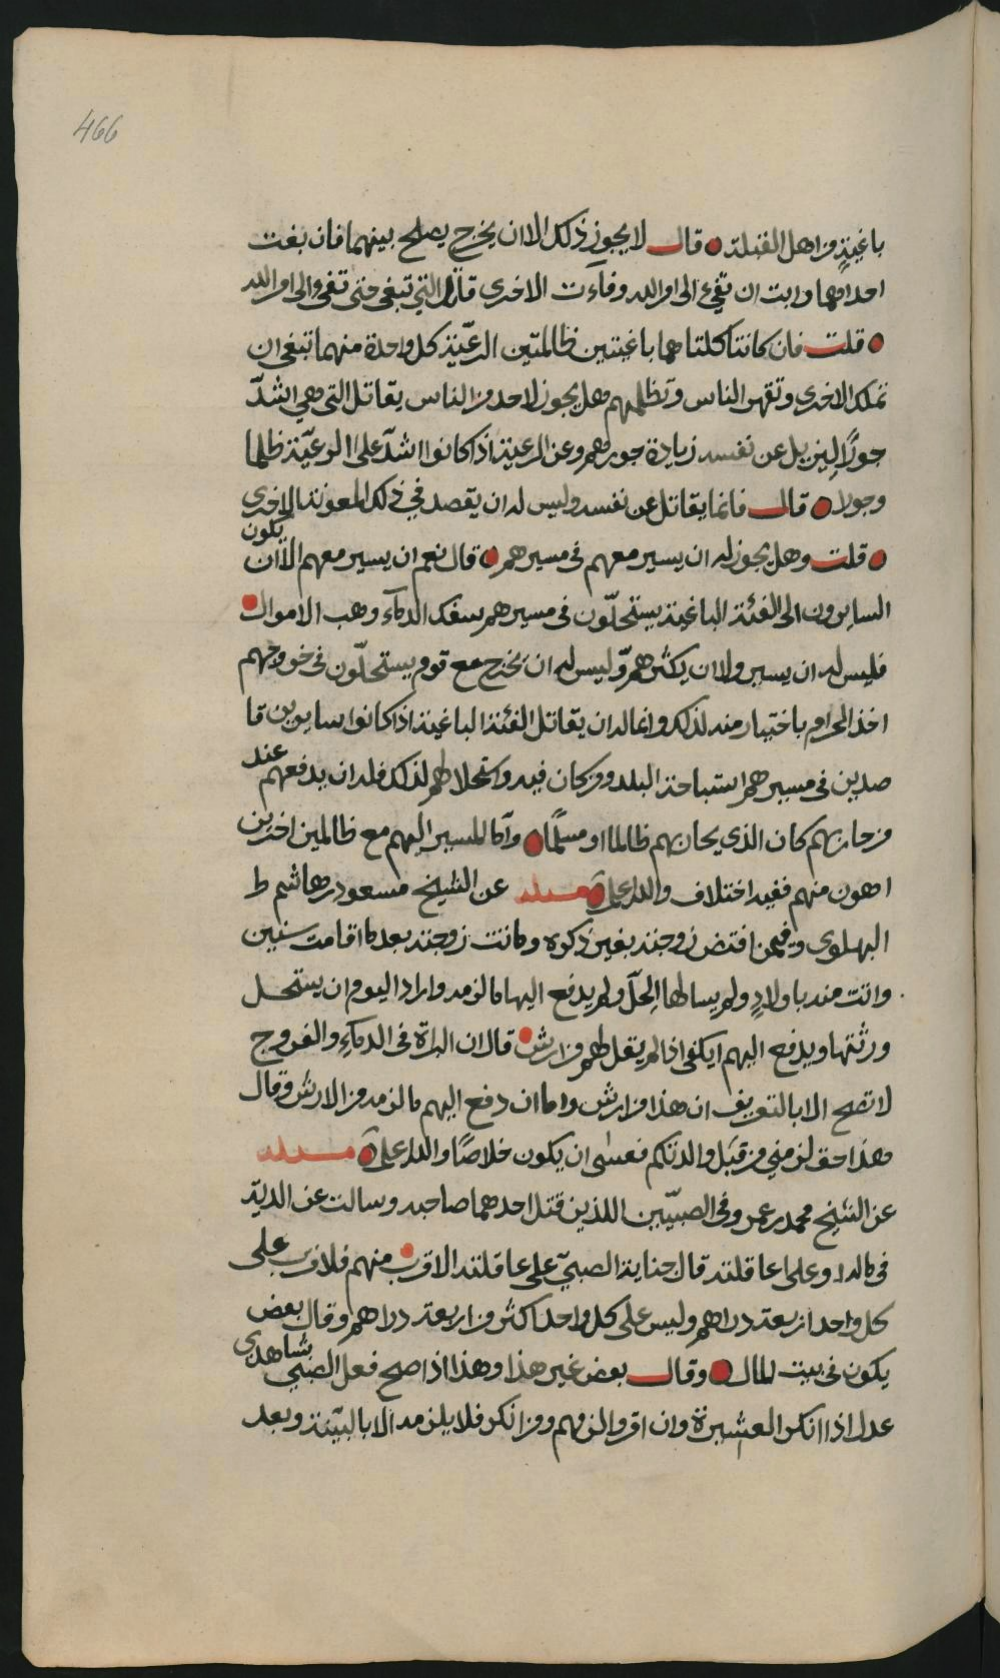 466
باغيةٍ من اهل القبلة ● قال لا يجوز ذلك الا ان يخرج يصلح بينهما فان بغت
احداهما وابت ان تفيء الى امر الله وفآءت الاخرى قاتل التي تبغى حتى تفيء الى امر الله
● قلت فان كانتا كلتاهما باغيتين ظالمتين الرعيّة كل واحدة منهما تبغى ان
تملك الاخرى وتقهر الناس وتظلمهم وهل يجوز لاحد من الناس يقاتل التي هي اشدّ
جورًا ليزيل عن نفسه زيادة جورهم وعن الرعية اذا كانوا اشدّ على الرعيّة ظلما
وجورا ● قال فانما يقاتل عن نفسه وليس له ان يقصد في ذلك المعونة للاخرى
● قلت وهل يجوز له ان يسير معهم في مسيرهم ● قال نعم ان يسير معهم الا ان يكون
السايرون الى الفئة الباغية يستحلّون في مسيرهم سفك الدمآء ونهب الاموال ●
فليس له ان يسير ولا ان يكثرهم وليس له ان يخرج مع قوم يستحلّون في خروجهم
اخذ الحرام باختيار منه لذلك وانما له ان يقاتل الفئة الباغية اذا كانوا سايرين قا
صدين في مسيرهم استباحة البلد ومن كان فيه واستحلالهم لذلك فله ان يدفعهم عند
من حاربهم كان الذي يحاربهم ظالما او مسلمًا ● وأما المسير اليهم مع ظالمين اخرين
اهون منهم ففيه اختلاف والله اعلم ● مسئلة عن الشيخ مسعود بن هاشم ط
البهلوى وفيمن افتض زوجته بغير ذكره وماتت زوجته بعد ما اقامت سنين
واتت منه باولادٍ ولم يسالها الحلّ ولم يدفع اليها ما لزمه واراد اليوم ان يستحل
ورثتها ويدفع اليهم ايكفى اذا لم يقل لهم من ارش ● قال ان البرآة في الدمآء والفروج
لا تصح الا بالتعريف ان هذا من ارش واما ان دفع اليهم ما لزمه من الارش وقال
وهذا حق لزمني من قبَل والدتكم فعسٰى ان يكون خلاصًا والله اعلم ● مسئلة
عن الشيخ محمد بن عمر وفى الصبيّين اللذين قتل احدهما صاحبه وسالت عن الدية
في ماله او على عاقلته قال جناية الصبيّ على عاقلته الاقرب ● منهم فلاقرب على
كل واحد اربعة دراهم وليس على كل واحد اكثر من اربعة دراهم وقال بعض
يكون في بيت المال ● وقال بعض غير هذا وهذا اذا صح فعل الصبي بشاهدى
عدل اذا انكر العشيرة وان اقروا لزمهم ومن انكر فلا يلزمه الا بالبيّنة وبعد